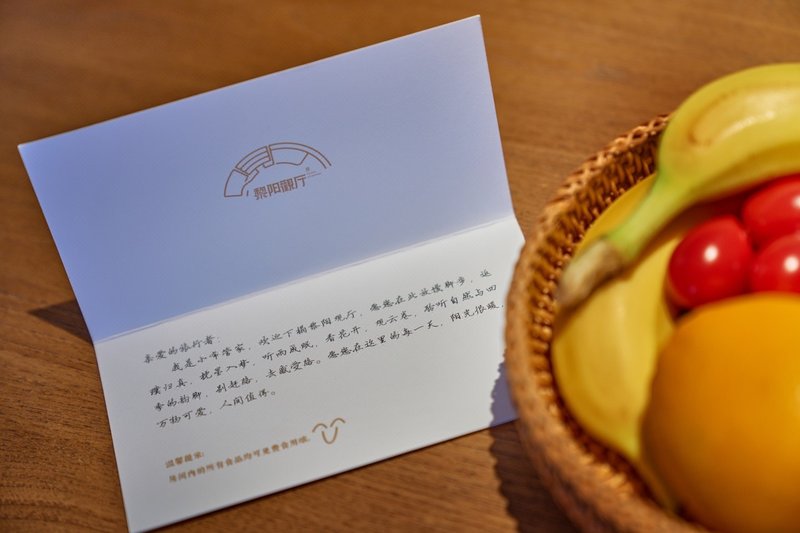 黎阳觀厅
亲爱的旅行者:
我是小年管家,欢迎下榻黎阳观厅,愿您在此放慢脚步,返
璞归真,枕星入梦,听雨成眠,看花开,观云卷,聆听自然与四
季的韵脚,别赶路,去感受路。愿您在这里的每一天,阳光依暖,
万物可爱,人间值得。
温馨提示:
房间内的所有食品均可免费食用哦